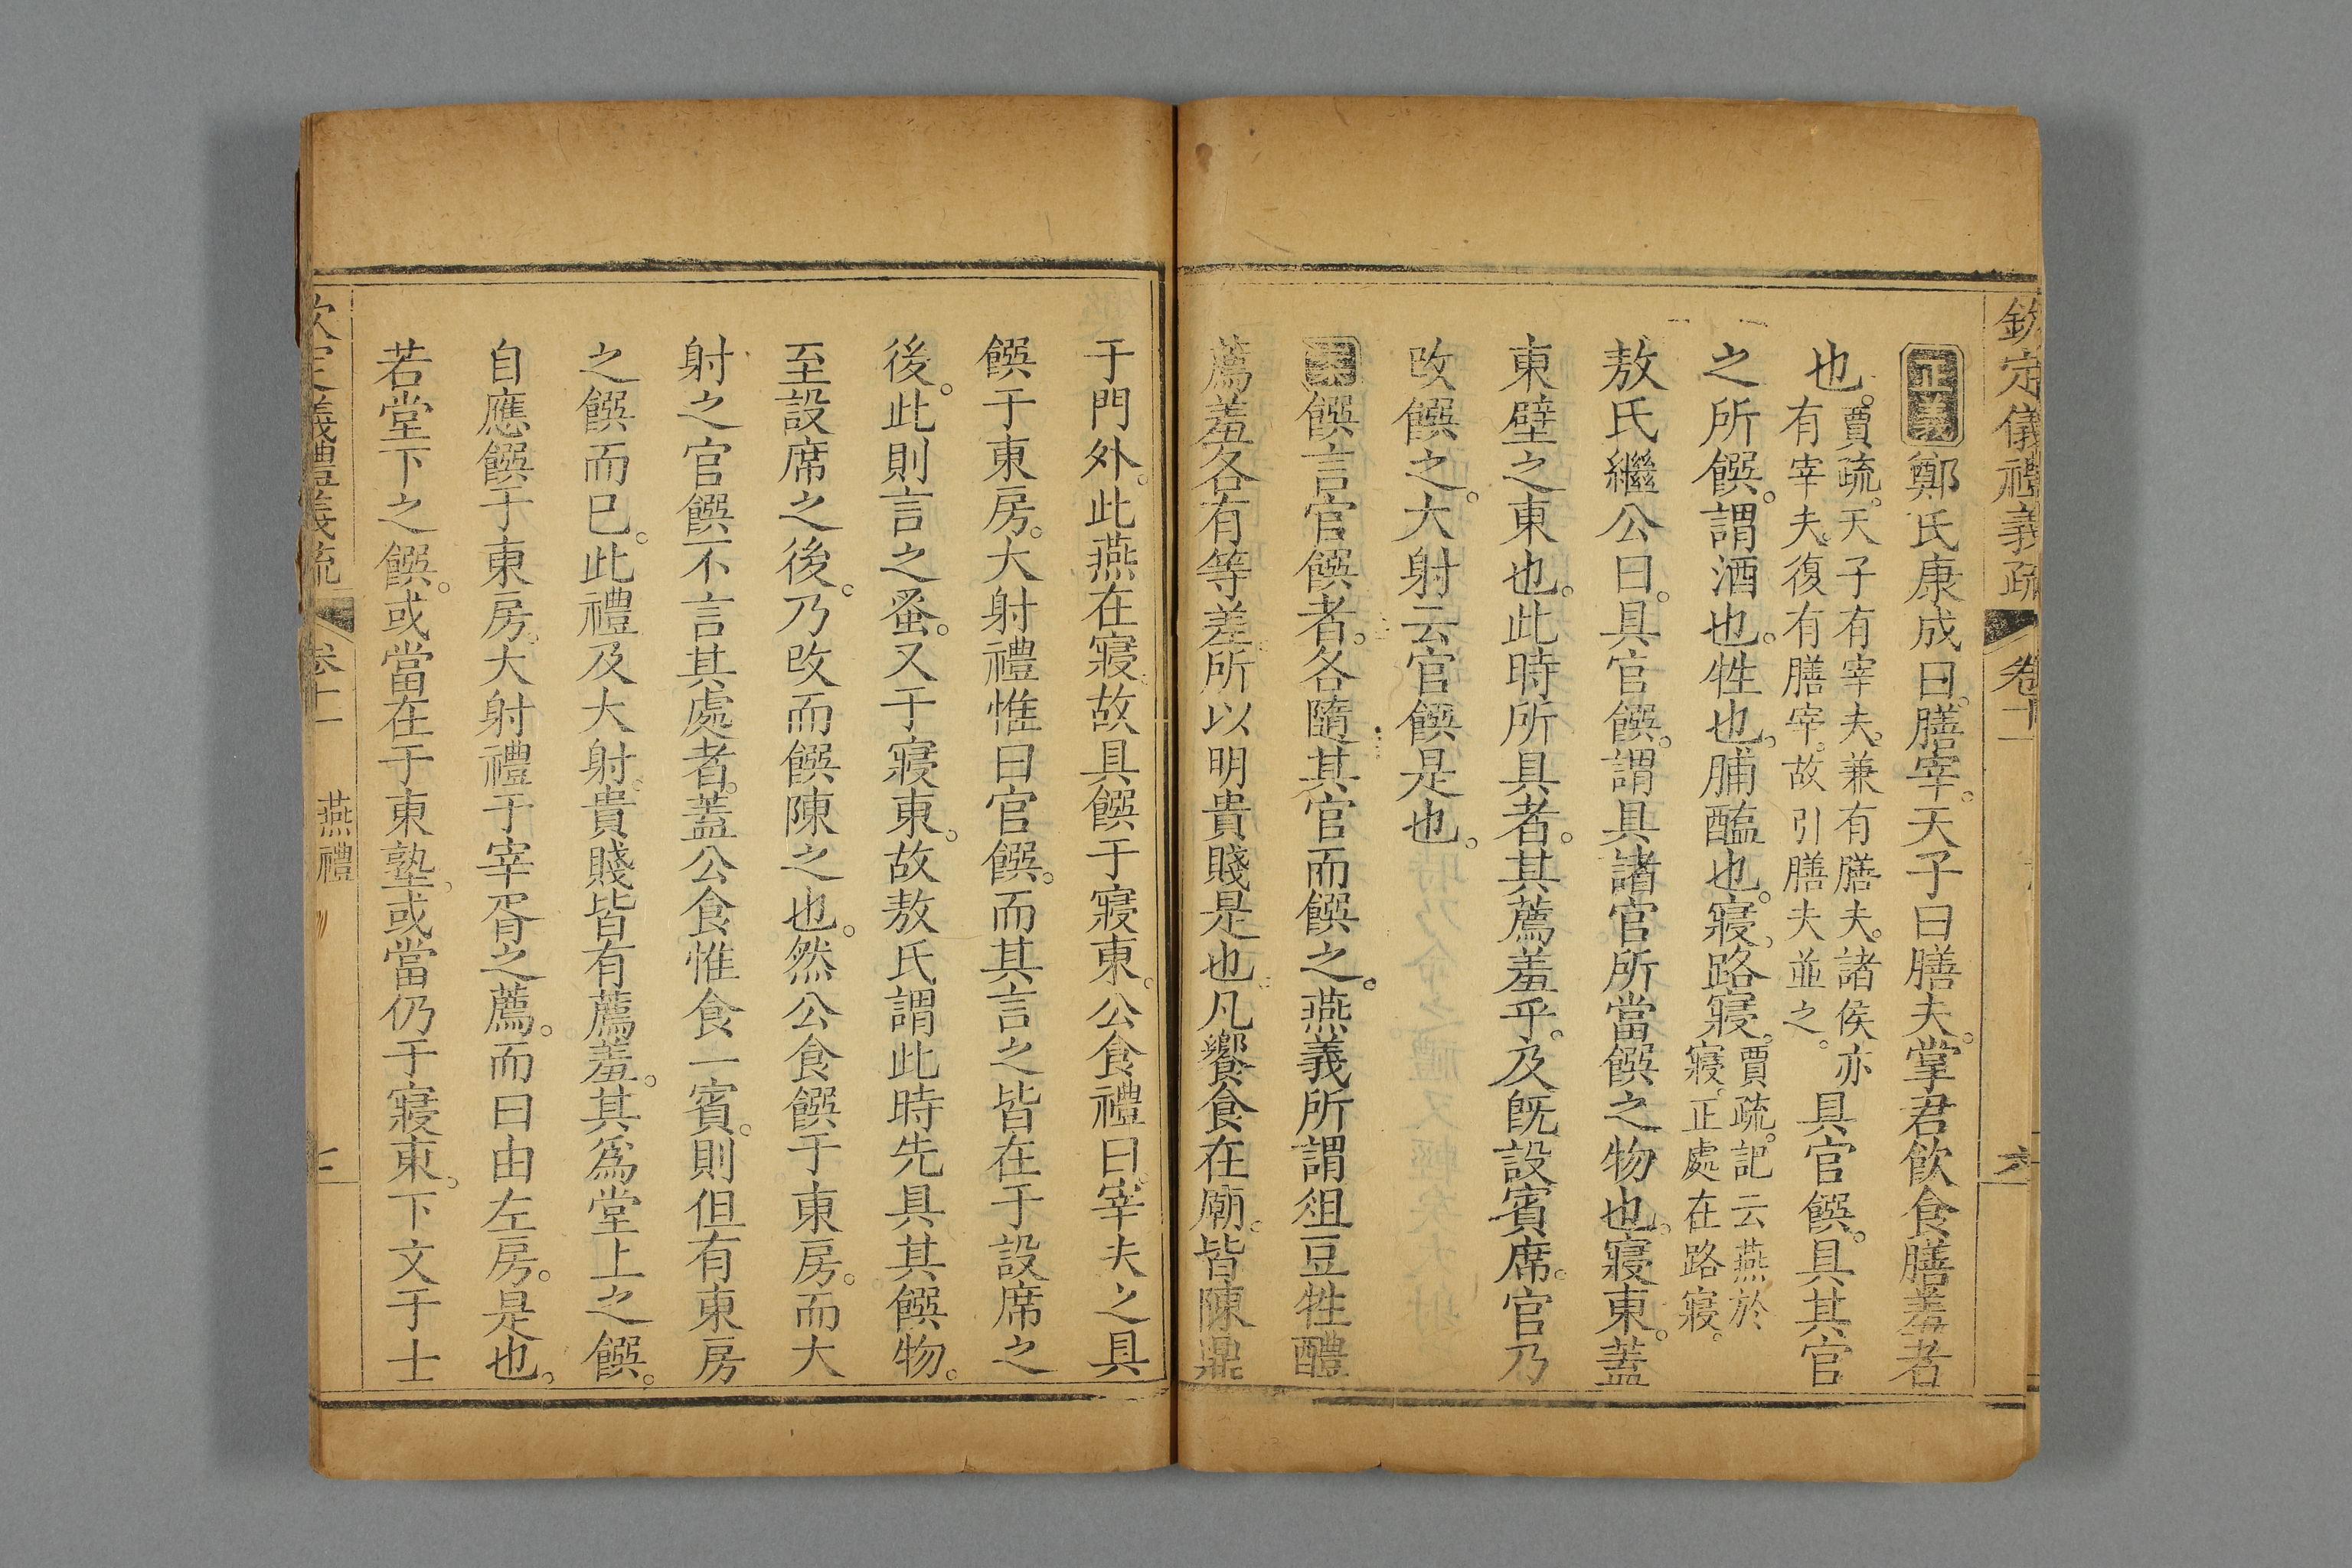 欽定儀禮義疏 卷十一 六
正義鄭氏康成曰。膳宰。天子曰膳夫。掌君飲食膳羞者
也。賈疏。天子有宰夫。兼有膳夫。諸侯亦
有宰夫。復有膳宰。故引膳夫並之。具官饌。具其官
之所饌。謂酒也。牲也。脯醢也。寢。路寢。賈疏。記云燕於
寢。正處在路寢。
敖氏繼公曰。具官饌。謂具諸官所當饌之物也。寢東。蓋
東壁之東也。此時所具者。其薦羞乎。及既設賓席。官乃
改饌之。大射云官饌是也。
饌言官饌者。各隨其官而饌之。燕義所謂俎豆牲醴
薦羞各有等差。所以明貴賤是也。凡饗食在廟。皆陳鼎
于門外。此燕在寢。故具饌于寢東。公食禮曰。宰夫之具
饌于東房。大射禮惟曰官饌。而其言之皆在于設席之
後。此則言之蚤。又于寢東。故敖氏謂此時先具其饌物。
至設席之後。乃改而饌陳之也。然公食饌于東房。而大
射之官饌不言其處者。蓋公食惟食一賓。則但有東房
之饌而已。此禮及大射。貴賤皆有薦羞。其為堂上之饌。
自應饌于東房。大射禮于宰胥之薦。而曰由左房。是也。
若堂下之饌。或當在于東塾。或當仍于寢東。下文于士
欽定儀禮義疏 卷十一 燕禮